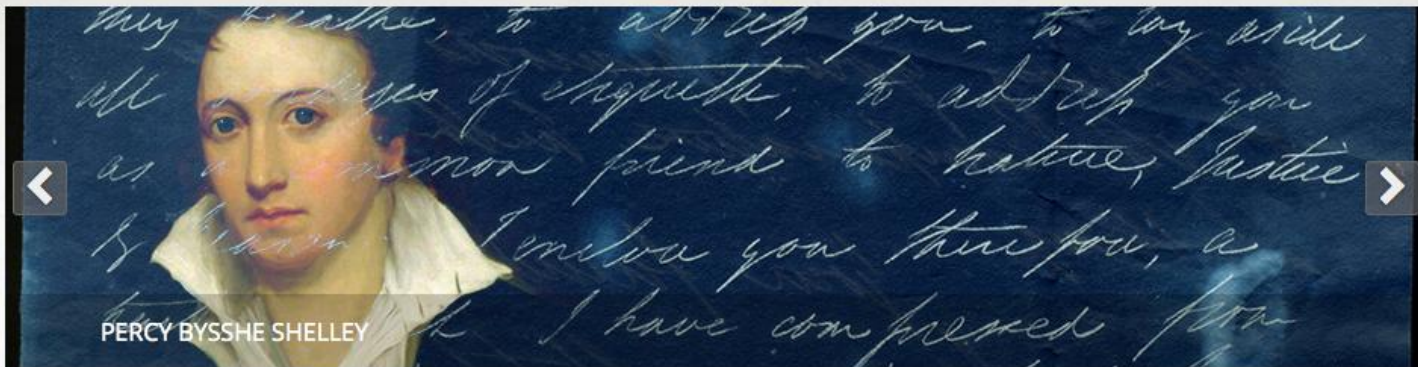 they breathe, to address you, to lay aside
all of etiquette, to address you
as a common friend to nature, Justice
& Reason. I enclose you therefore, a
I have compressed from
PERCY BYSSHE SHELLEY